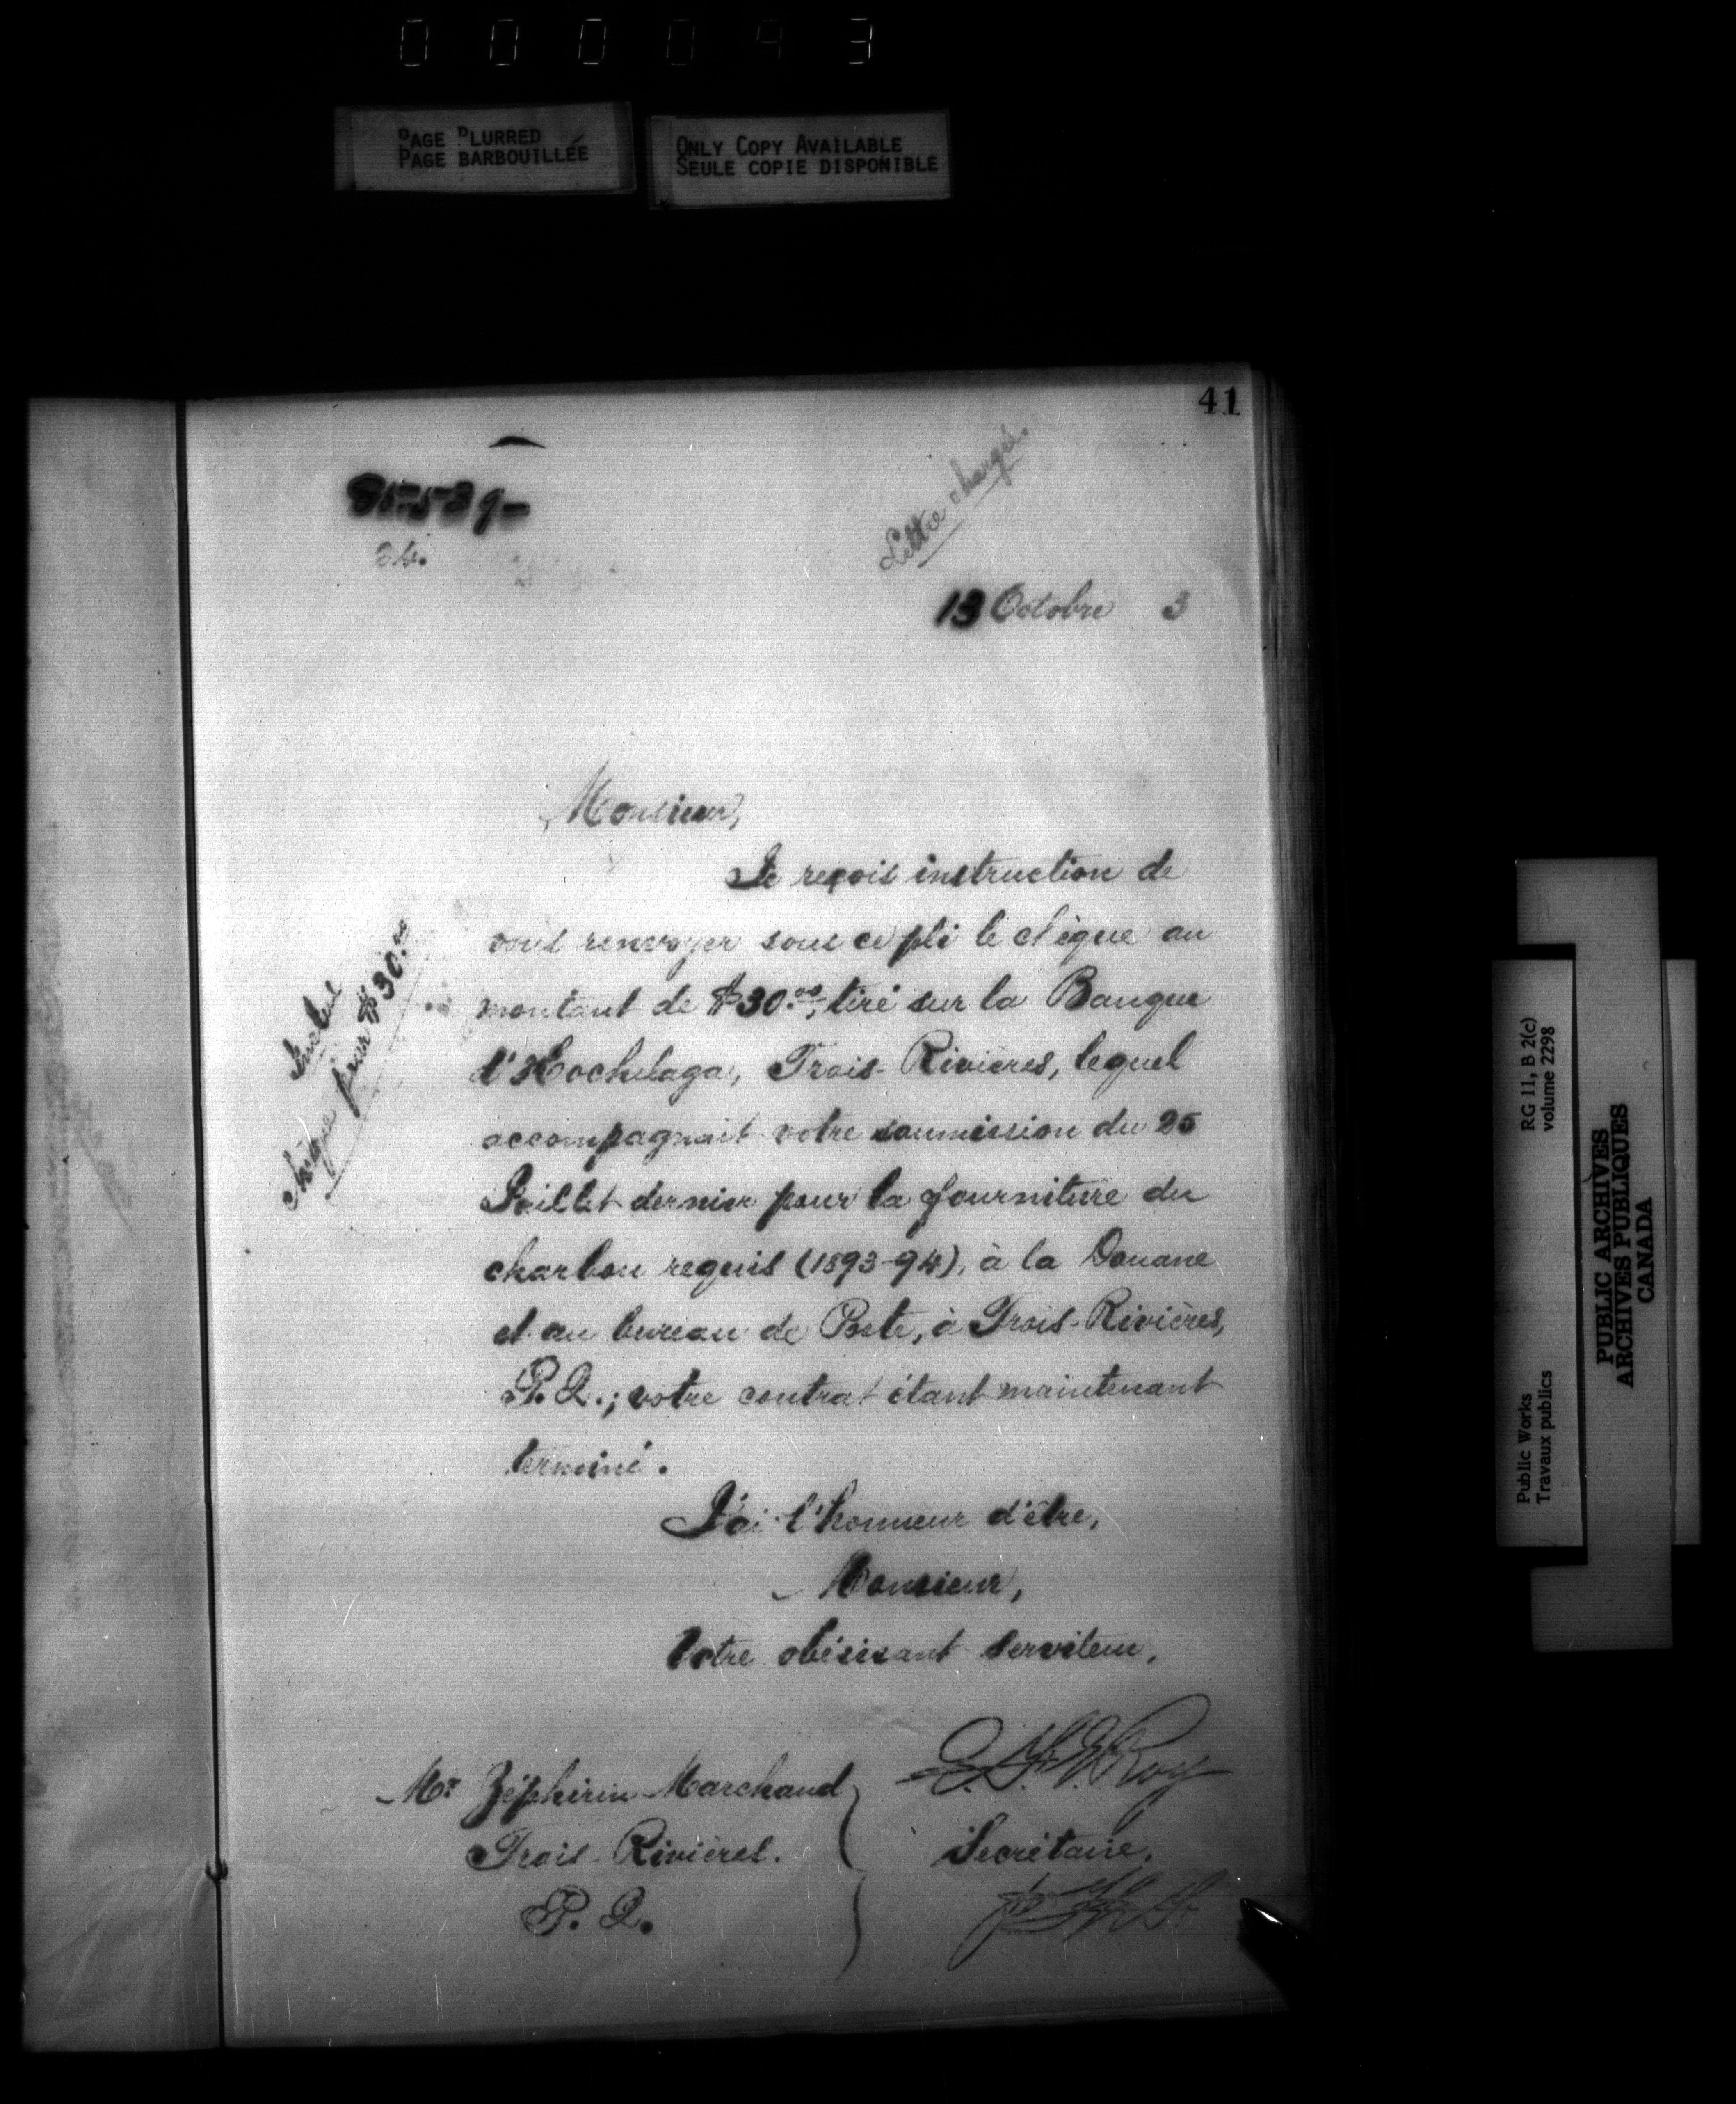 000093
PAGE BLURRED
PAGE BARBOUILLÉE
ONLY COPY AVAILABLE
SEULE COPIE DISPONIBLE
41
Lettre chargée.
13 Octobre 3
Monsieur,
Je reçois instruction de
vous renvoyer sous ce pli le chèque au
montant de $30.00, tiré sur la Banque
d'Hochelaga, Trois-Rivières, lequel
accompagnait votre soumission du 25
Juillet dernier pour la fourniture du
charbon requis (1893-94), à la Douane
et au bureau de Poste, à Trois-Rivières,
P.Q.; votre contrat étant maintenant
terminé.
Inclus
chèque pour $30.00
J'ai l'honneur d'être,
Monsieur,
Votre obéissant serviteur,
E. F. E. Roy
Secrétaire.
Mr Zéphirin Marchand
Trois-Rivières.
P. Q.
RG 11, B 2(c)
volume 2298
Public Works
Travaux publics
PUBLIC ARCHIVES
ARCHIVES PUBLIQUES
CANADA